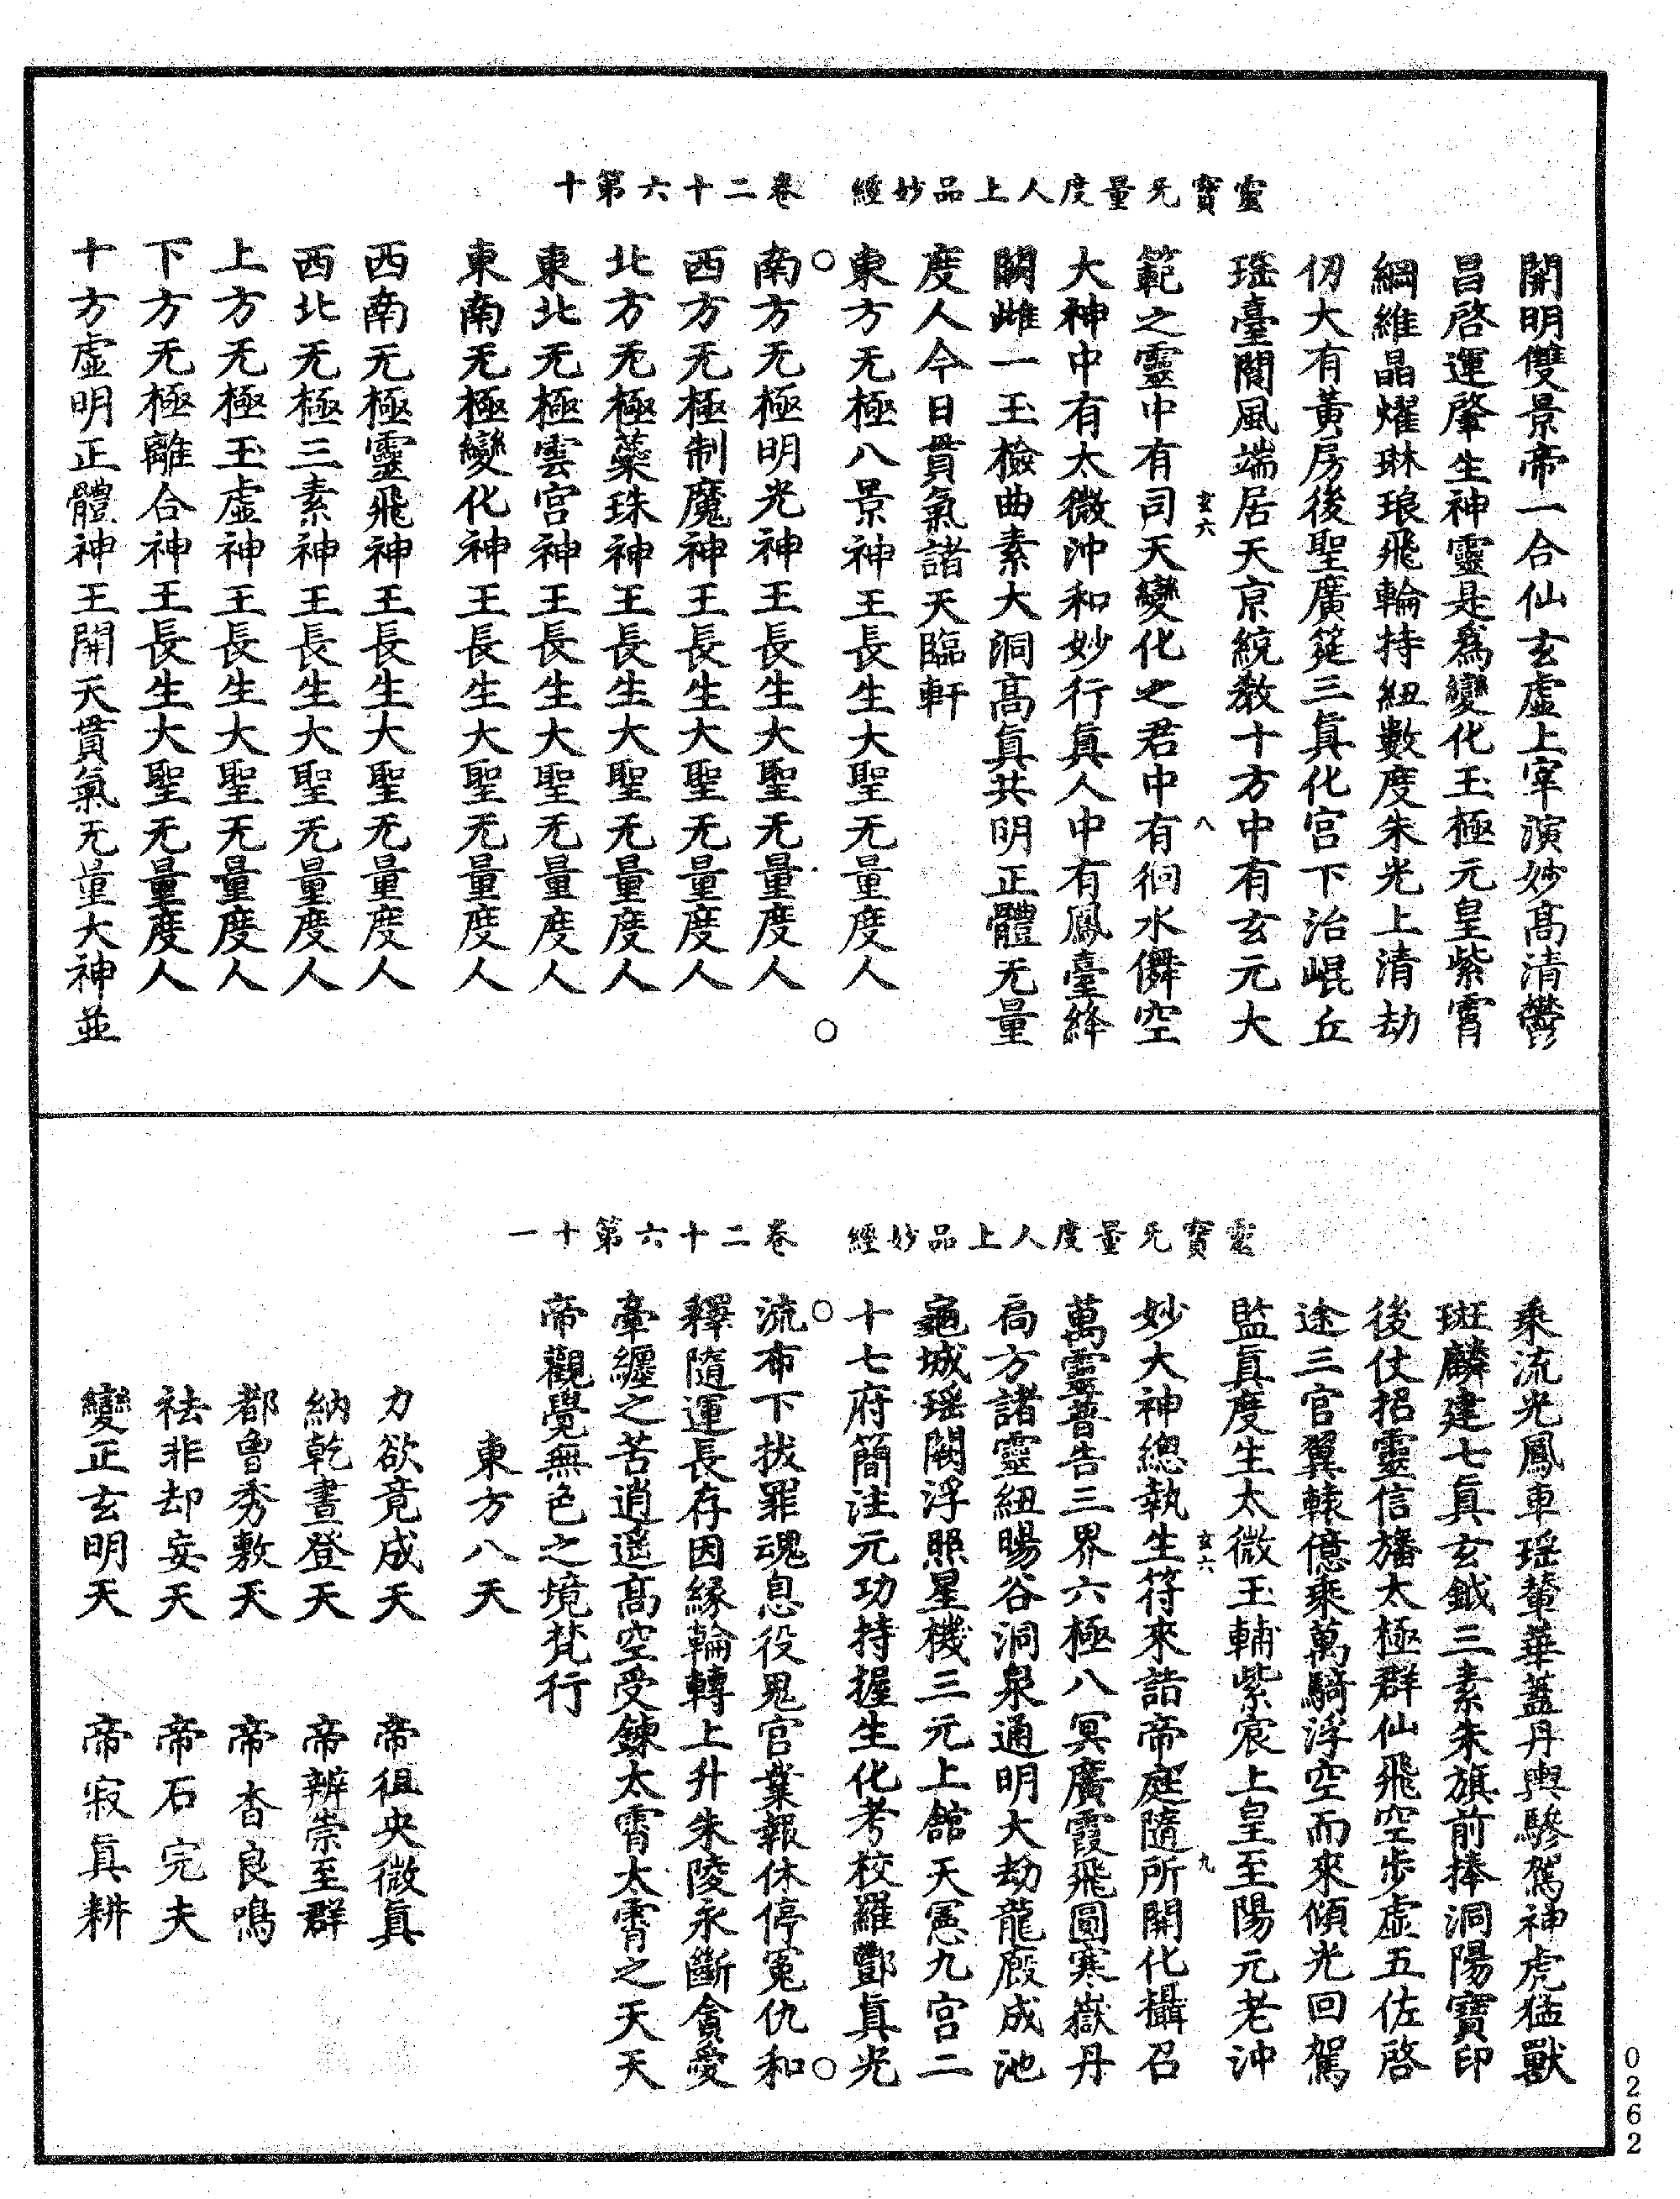 靈寶无量度人上品妙經　卷二十六第十
開明雙景帝一合仙玄虛上宰演妙高清鬱
昌啓運肇生神靈是爲變化玉極元皇紫霄
綱維晶燿琳琅飛輪持紐數度朱光上清劫
仞大有黃房後聖廣筵三眞化宮下治崐丘
瑶臺閬風端居天京統教十方中有玄元大
玄六　八
範之靈中有司天變化之君中有徊水儛空
大神中有太微沖和妙行眞人中有鳳臺絳
闕雌一玉檢曲素大洞高眞共明正體无量
度人今日貫氣諸天臨軒
東方无極八景神王長生大聖无量度人
南方无極明光神王長生大聖无量度人
西方无極制魔神王長生大聖无量度人
北方无極蘂珠神王長生大聖无量度人
東北无極雲宮神王長生大聖无量度人
東南无極變化神王長生大聖无量度人
西南无極靈飛神王長生大聖无量度人
西北无極三素神王長生大聖无量度人
上方无極玉虛神王長生大聖无量度人
下方无極離合神王長生大聖无量度人
十方虛明正體神王開天貫氣无量大神並
靈寶无量度人上品妙經　卷二十六第十一
乘流光鳳車瑶輦華蓋丹輿驂駕神虎猛獸
斑麟建七眞玄鉞三素朱旗前捧洞陽寶印
後仗招靈信旛太極群仙飛空步虛五佐啓
途三官翼轅億乘萬騎浮空而來傾光回駕
監眞度生太微玉輔紫宸上皇至陽元老沖
玄六　九
妙大神總執生符來詣帝庭隨所開化攝召
萬靈普告三界六極八冥廣霞飛圓寒嶽丹
扃方諸靈紐暘谷洞泉通明大劫龍廏成池
龜城瑶闕浮照星機三元上舘天憲九宮二
十七府簡注元功持握生化考校羅酆眞光
流布下拔罪魂息役鬼官業報休停寃仇和
釋隨運長存因緣輪轉上升朱陵永斷貪愛
牽纏之苦逍遥高空受鍊太霄太霄之天天
帝觀覺無色之境梵行
東方八天
力欲竟成天　帝徂央微眞
納乾晝登天　帝辨崇至群
都魯秀敷天　帝杳良鳴
祛非却妄天　帝石完夫
變正玄明天　帝寂眞耕
0262